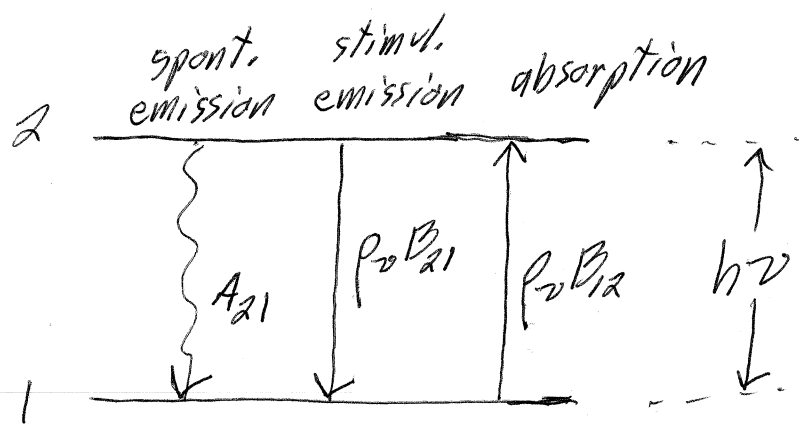 spont.
emission
stimul.
emission
absorption
2
A₂₁
ρᵥB₂₁
ρᵥB₁₂
hν
1